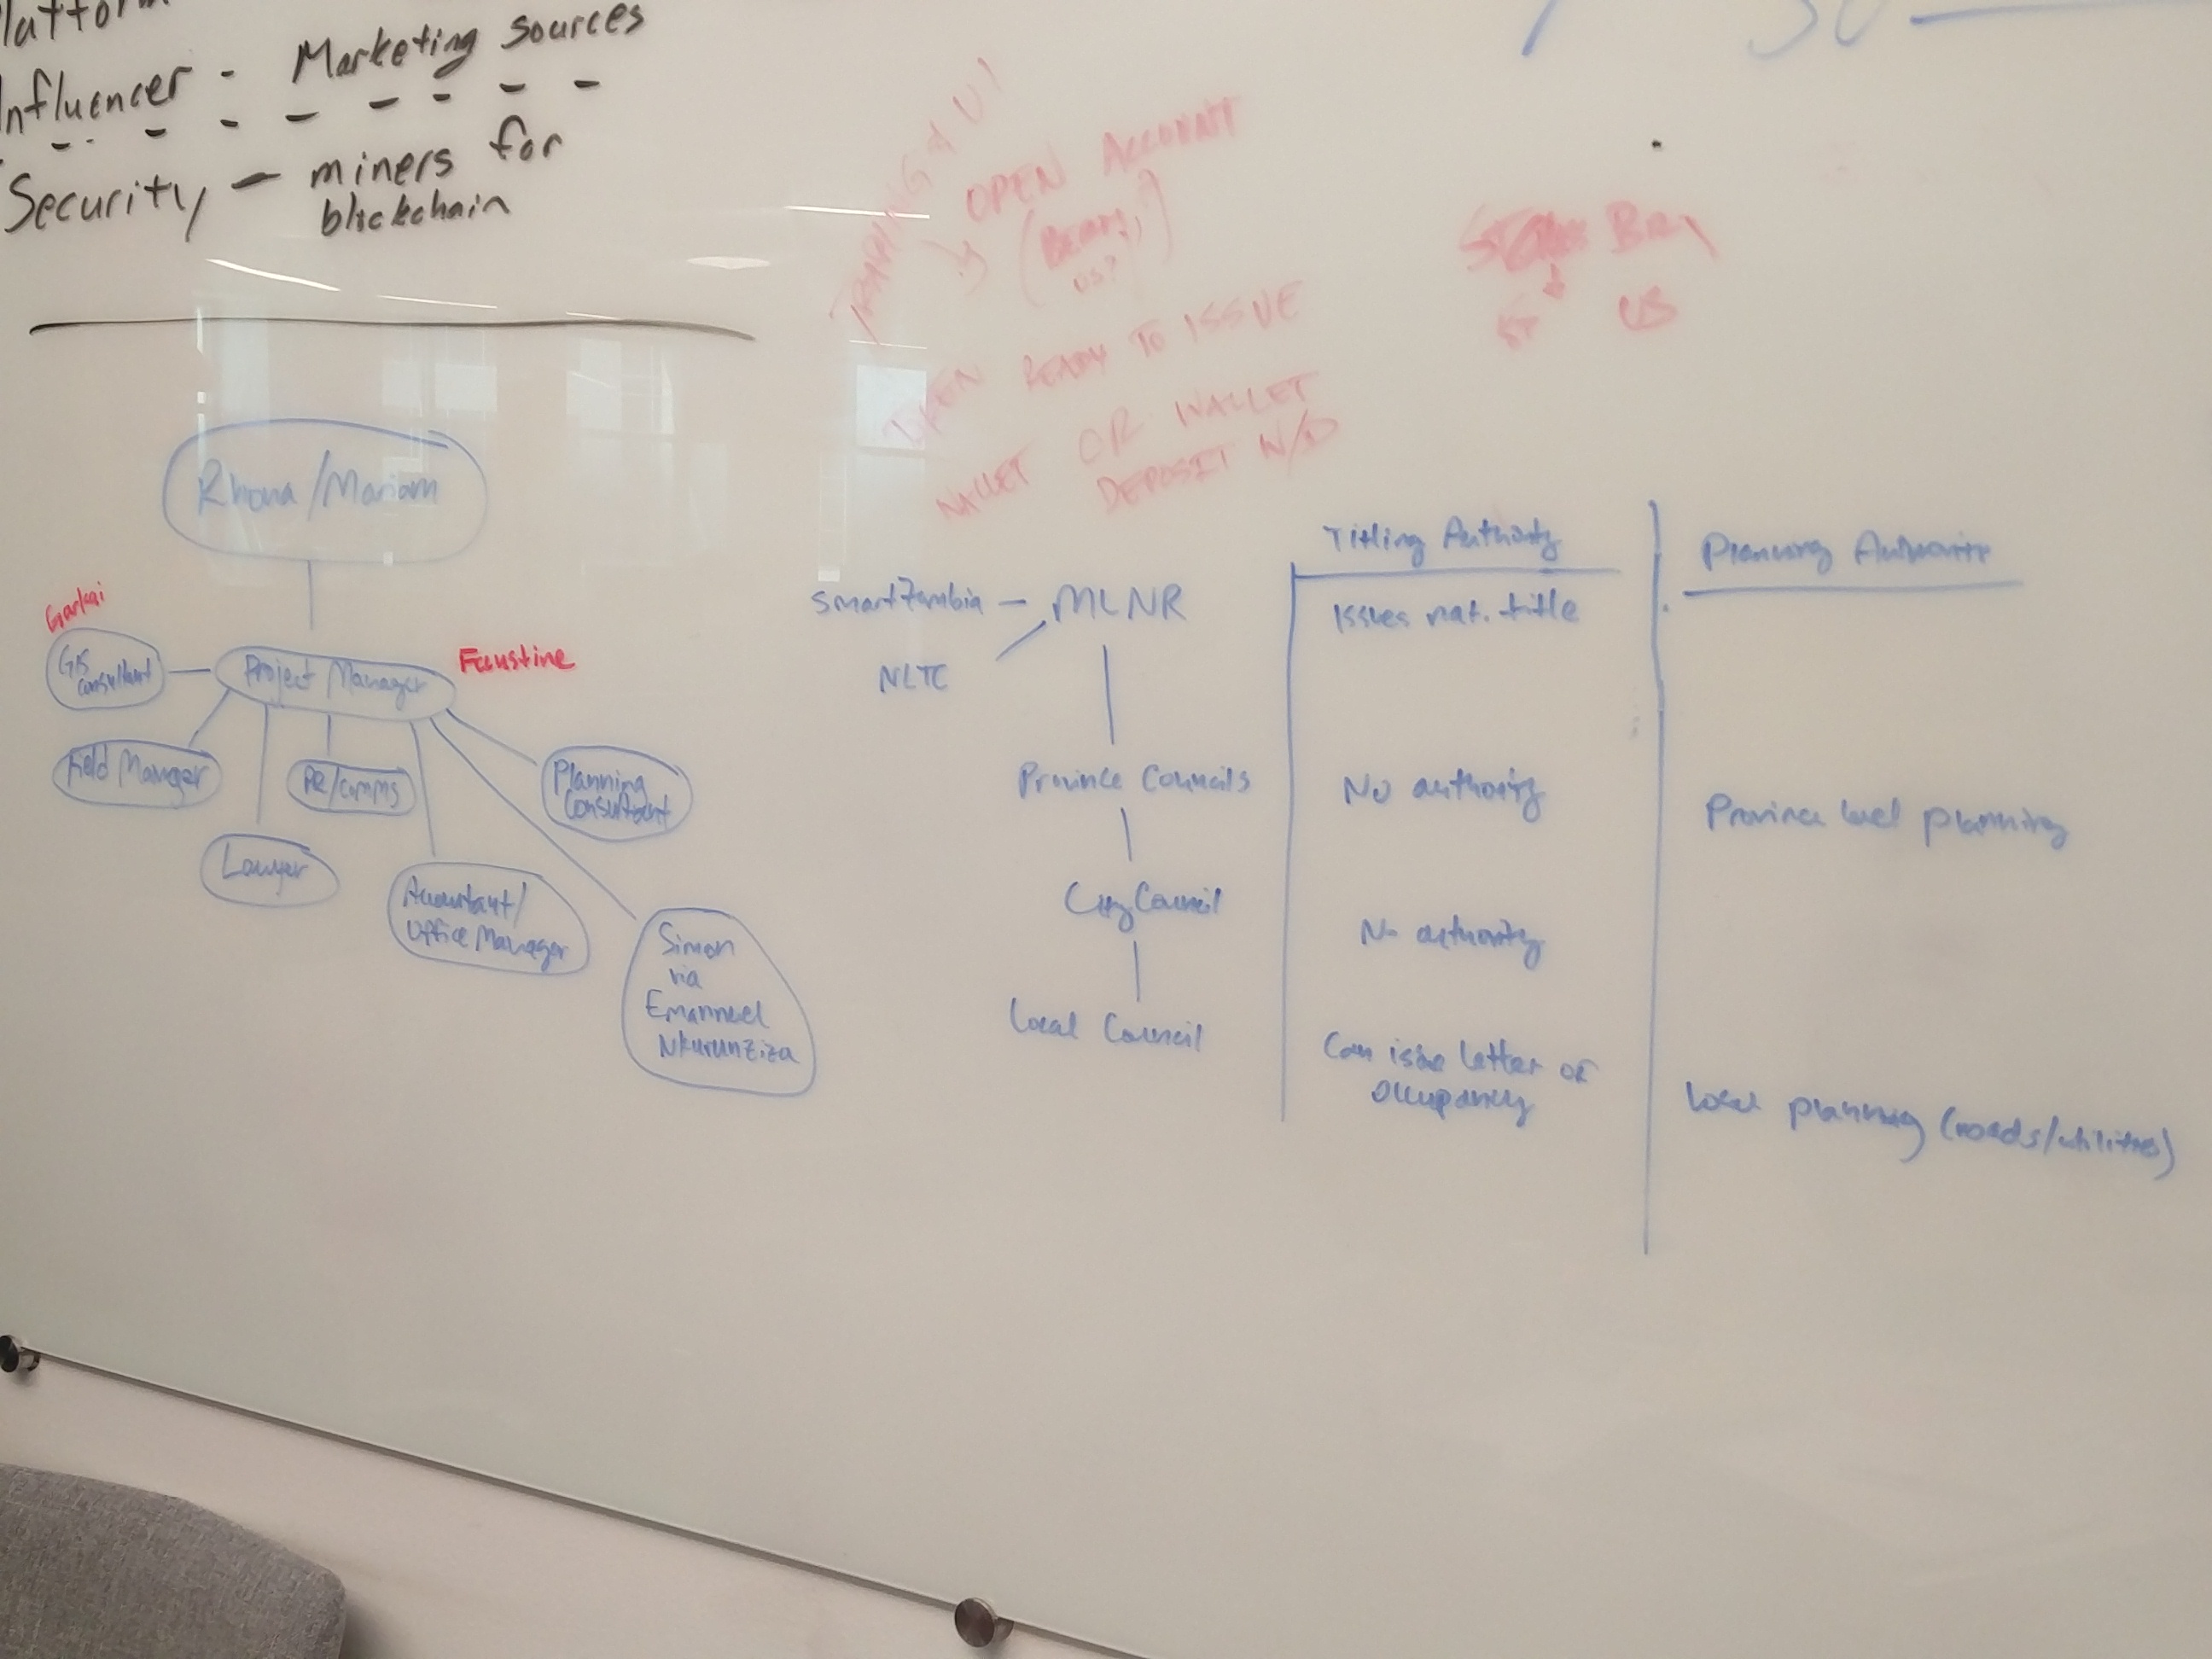 Influencer - Marketing sources
Security - miners for
blockchain
TRADING & UI
OPEN ACCOUNT
READY TO ISSUE
WALLET OR WALLET
DEPOSIT W/D
US
Rhona/Mariam
Garkai
GIS
Consultant
Project Manager
Faustine
Field Manager
PR/comms
Planning
Consultant
Lawyer
Accountant/
Office Manager
Simon
via
Emannuel
Nkurunziza
SmartZambia - MLNR
NLTC
Province Councils
City Council
Local Council
Titling Authority
Issues nat. title
No authority
No authority
Can issue letter of
occupancy
Planning Authority
Province level planning
Local planning (roads/utilities)